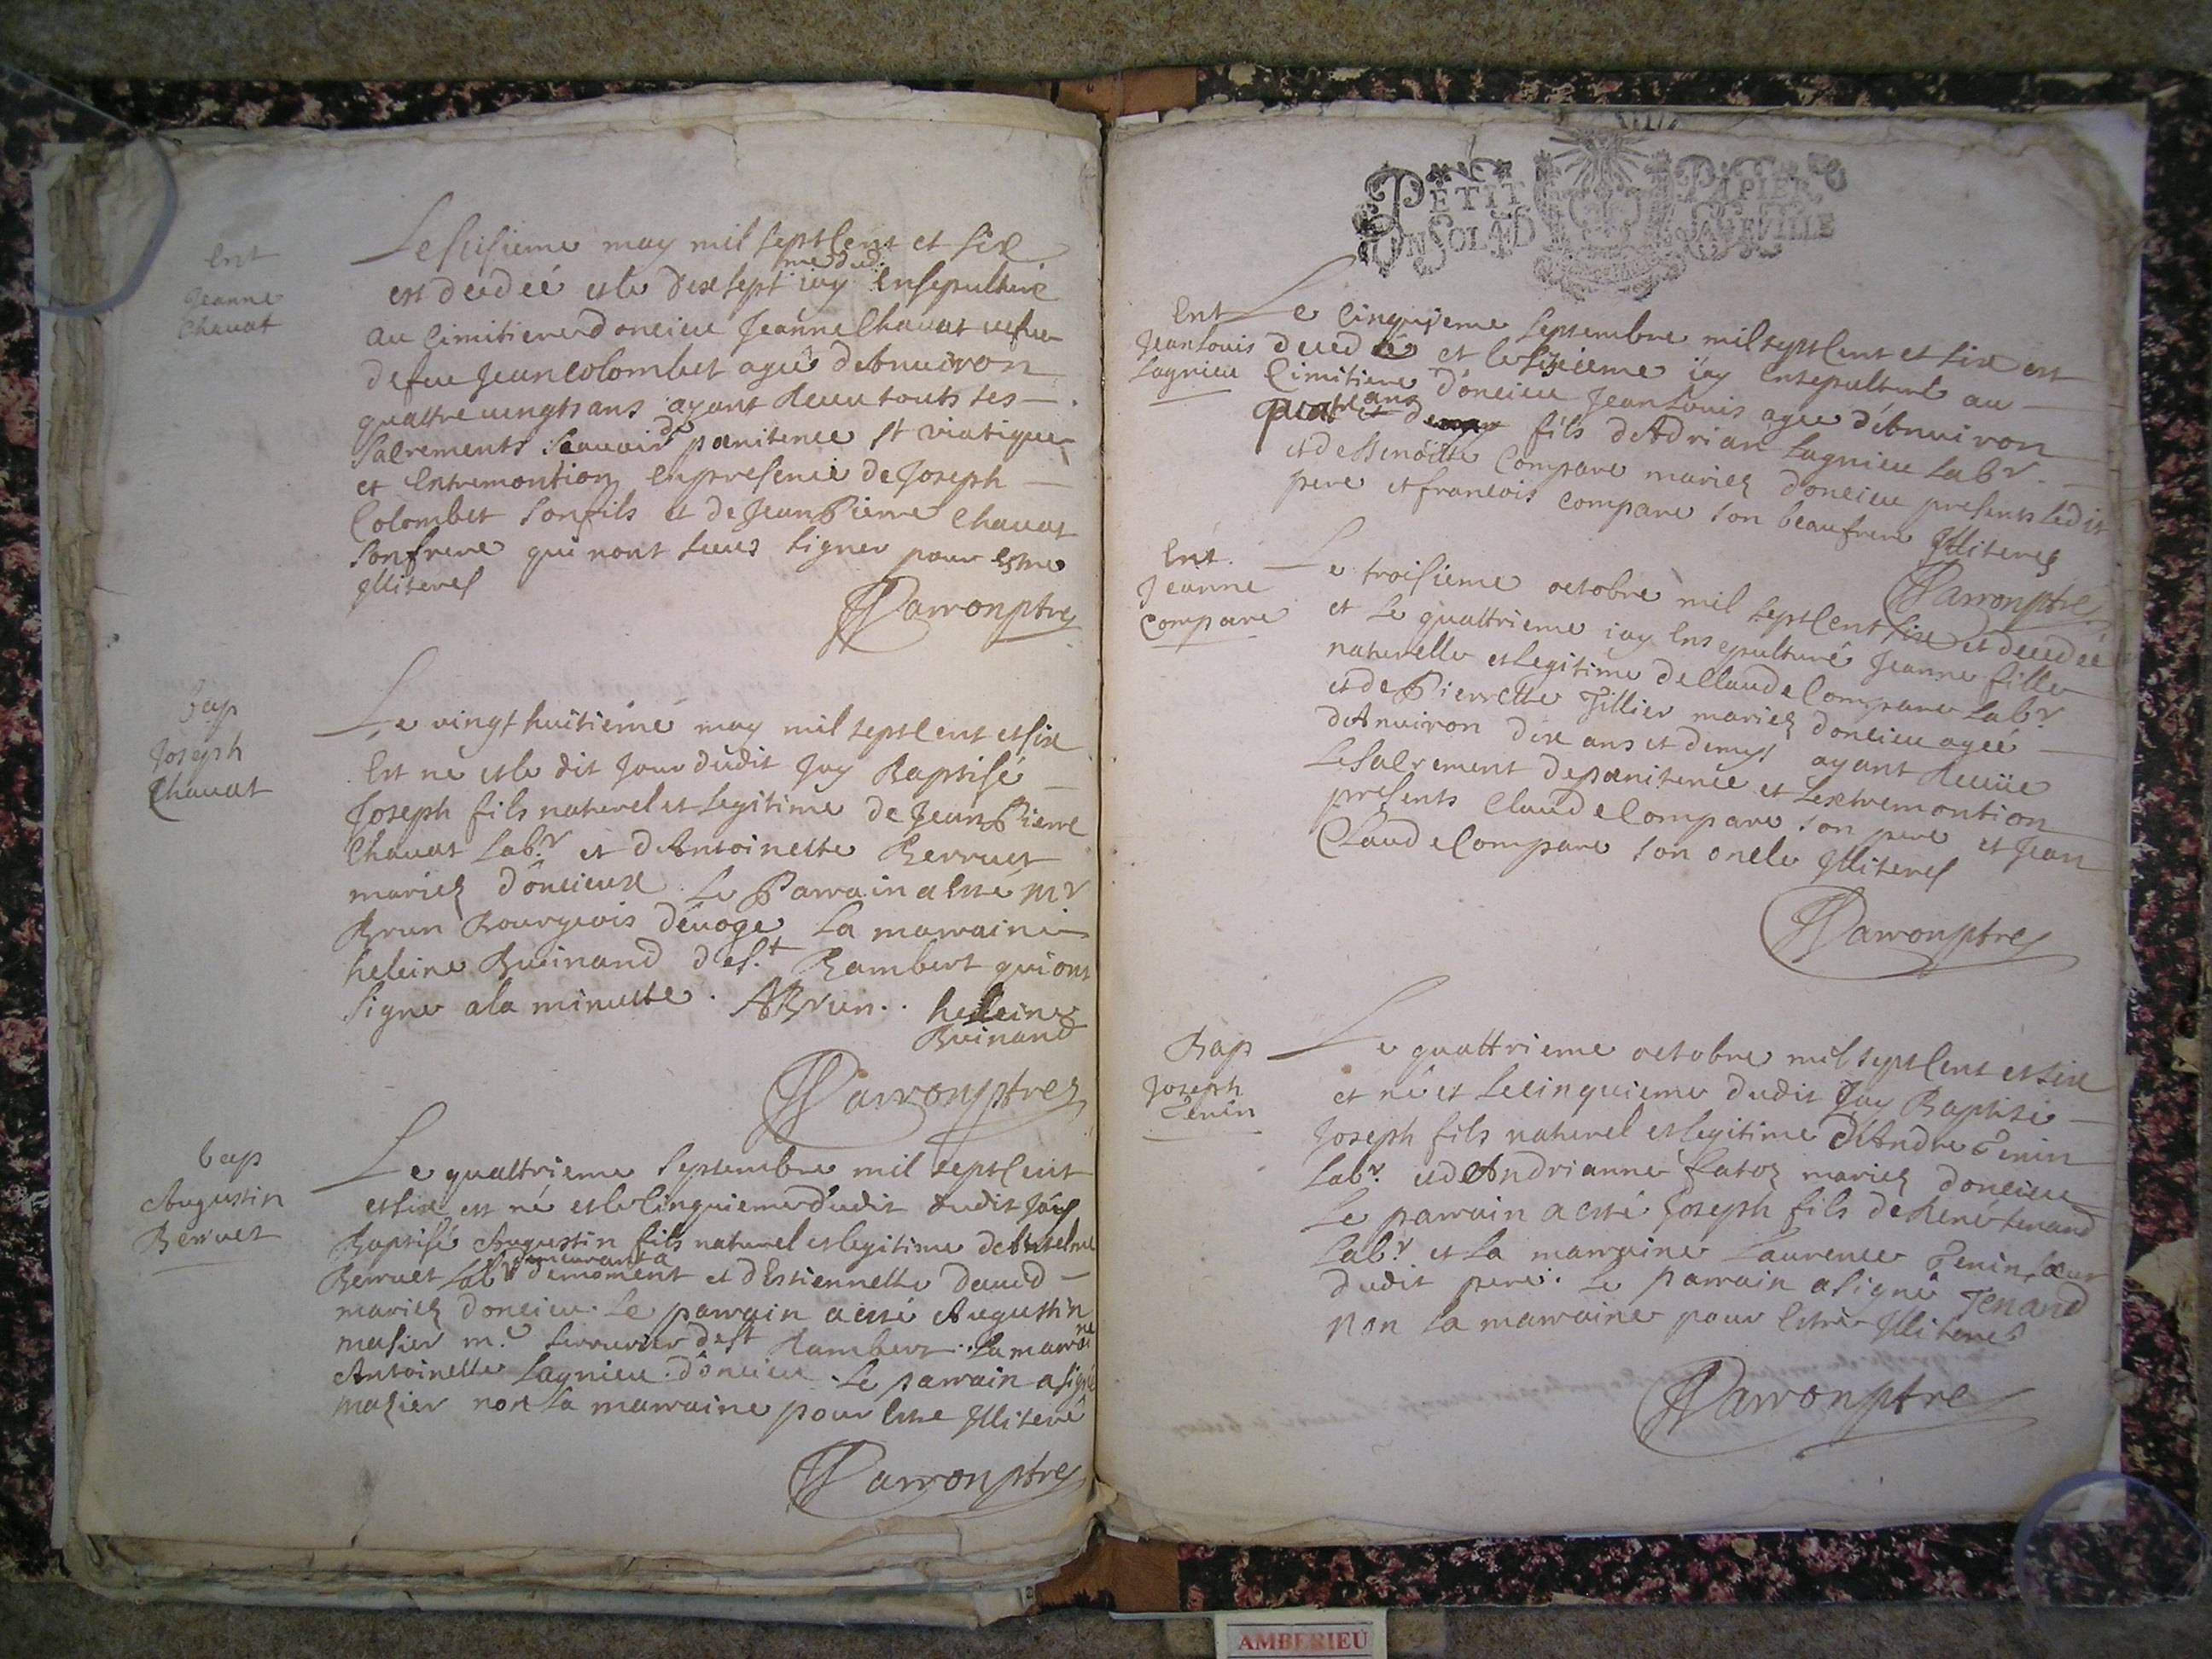 Ent
Jeanne
Chavat
Le sisieme may mil sept cent et six
est decedeé et le dix sept me dud. iay Ensepulturé
au Cimitiere doncieu Jeanne Chavat vefve
de feu Jean Colombet ageé d'Environ
quattre vingts ans ayant Receu touts ses
Sacrements Scavoir de pœnitence st viatique
et Extremontion En presence de Joseph
Colombet son fils et de Jean Pierre Chavat
son frere qui n'ont sceus signer pour estre
Jlliteres
Parron ptre
bap
Joseph
Chavat
Le vingt huitiéme may mil sept cent et six
Est né et le dit Jour dudit Jay Baptisé
Joseph fils naturel et legitime de Jean Pierre
Chavat Labr. et d'Antoinette Berruet
mariez d'oncieux. Le Parrain a Esté mr
Brun Bourgeois d'evoge La marraine
heleine Buinand de st Rambert qui ont
signe a la minutte. ABrun.. heleine
Buinand
Parron ptre
bap
Augustin
Berruet
Le quattrieme septembre mil sept cent
et six est né et le Cinquieme dudit
Baptisé Augustin fils naturel et legitime
Berruet Labr demeurant a demoment et d'Estiennette David
mariez doncieu. Le parrain a esté Augustin
masier me. serrurier de st Rambert. La marraine
Antoinette Lagnieu d'oncieu. Le parrain a signé
mazier non La marraine pour Estre Jlliteré
Parron ptre
PETIT PAPIER
UN SOL 4 D LA FEVILLE
Ent
Jean Louis
Lagnieu
Le Cinquieme Septembre mil sept Cent et six est
decedé et le sizieme iay Ensepulturé au
Cimitiere d'oncieu Jean Louis agée d'Environ
quatre ans fils d'Adrian Lagnieu Labr.
et de Benoitte Compare mariez doncieu presents ledit
pere et francois Compare son beaufrere Jlliteres
Parron ptre
Ent.
Jeanne
Compare
Le troisieme octobre mil sept Cent six et decedeé
et Le quattrieme iay Ensepulturé Jeanne fille
naturelle et legitime de Claude Compare Labr
et de Pierrette Tillier mariez doncieu ageé
d'Anviron dix ans et demy ayant Receüe
Le Sacrement de pœnitence et L'extremontion
presents Claude Compare son pere et Jean
Claude Compare son oncle Jlliteres
Parron ptre
Bap
Joseph
Tenin
Le quattrieme octobre mil sept Cent et six
et né et Le cinquieme dudit Jay Baptisé
Joseph fils naturel et legitime d'Andre Tenin
Labr. et d'Andrianne fatoz mariez doncieu
Le parrain a esté Joseph fils de René tenand
Labr. et La marraine Laurence Tenin sœur
dudit pere. Le parrain a signé Tenand
non La marraine pour Estre Jlliteré
Parron ptre
AMBERIEU